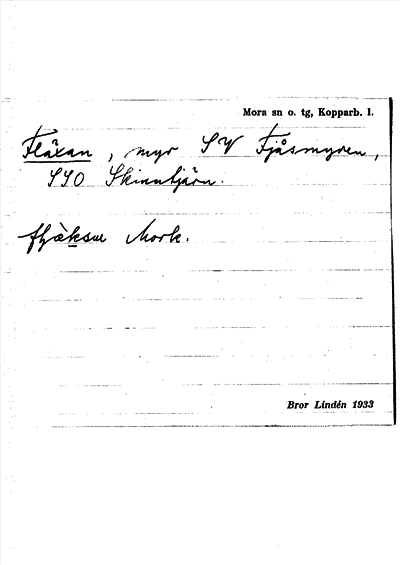 Mora sn o. tg, Kopparb. l.
Fläxan, myr SV Fjåsmyren,
SSO Skinntjärn.
Mork.
Bror Lindén 1933